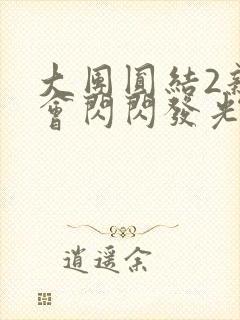 大團圓結2新
會閃閃發光
逍遥余